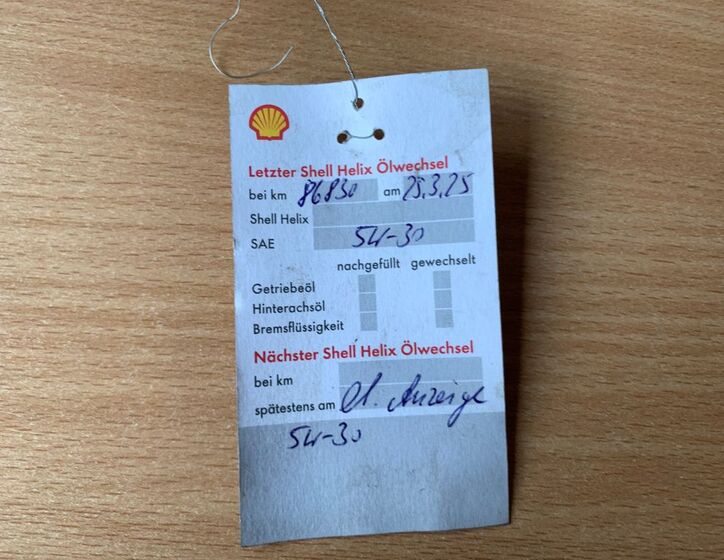 Letzter Shell Helix Ölwechsel
bei km 86830 am 25.3.25
Shell Helix
SAE 5W-30
nachgefüllt gewechselt
Getriebeöl
Hinterachsöl
Bremsflüssigkeit
Nächster Shell Helix Ölwechsel
bei km
spätestens am lt. Anzeige
5W-30